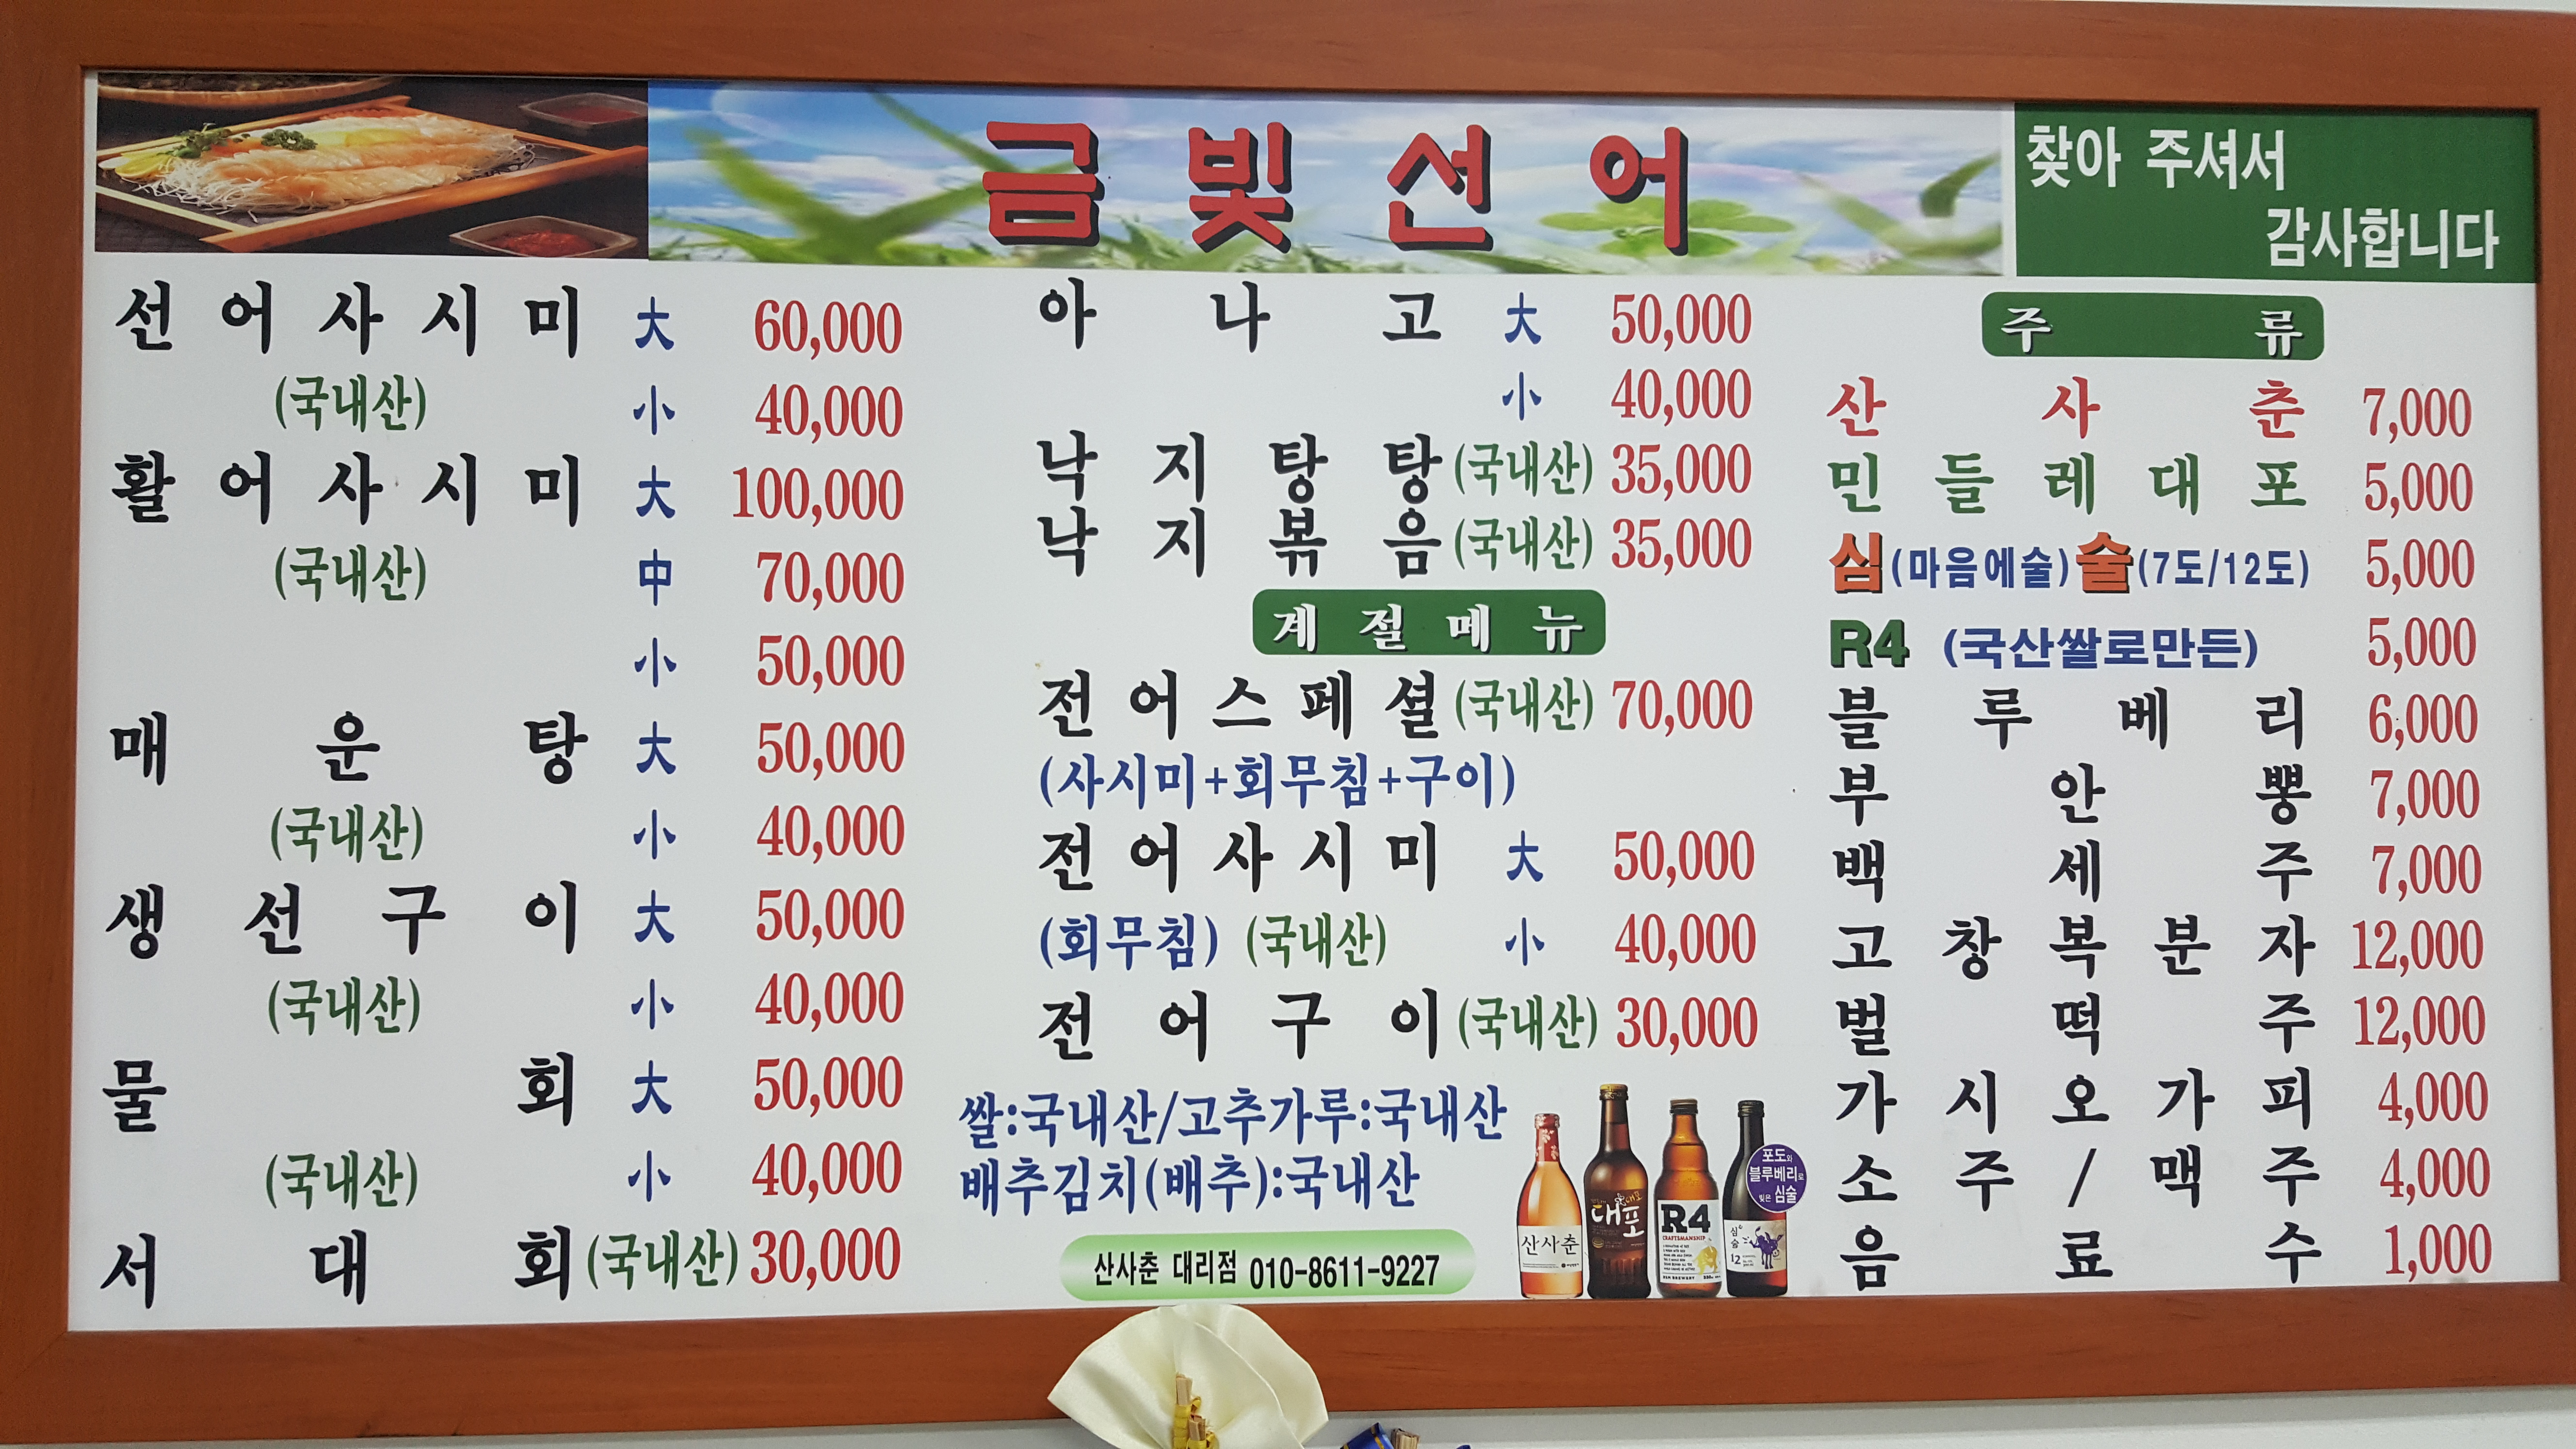 금빛선어
찾아 주셔서
감사합니다
선어사시미 大 60,000
(국내산) 小 40,000
활어사시미 大 100,000
(국내산) 中 70,000
小 50,000
매운탕 大 50,000
(국내산) 小 40,000
생선구이 大 50,000
(국내산) 小 40,000
물회 大 50,000
(국내산) 小 40,000
서대회(국내산) 30,000
아나고 大 50,000
小 40,000
낙지탕탕(국내산) 35,000
낙지볶음(국내산) 35,000
계절메뉴
전어스페셜(국내산) 70,000
(사시미+회무침+구이)
전어사시미 大 50,000
(회무침) (국내산) 小 40,000
전어구이(국내산) 30,000
쌀:국내산/고추가루:국내산
배추김치(배추):국내산
산사춘 대리점 010-8611-9227
산사춘
대포
R4
CRAFTSMANSHIP
심술
12
포도와
블루베리로
빚은 심술
주류
산사춘 7,000
민들레대포 5,000
심(마음에술)술(7도/12도) 5,000
R4 (국산쌀로만든) 5,000
블루베리 6,000
부안뽕 7,000
백세주 7,000
고창복분자 12,000
벌떡주 12,000
가시오가피 4,000
소주/맥주 4,000
음료수 1,000